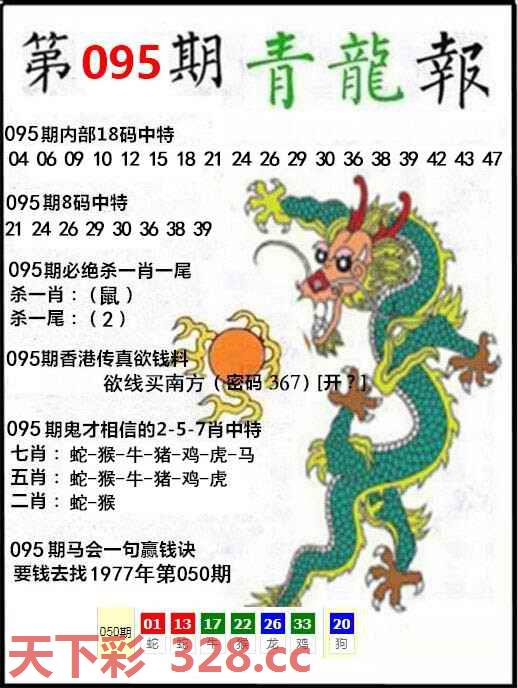 第095期青龍報
095期内部18码中特
04 06 09 10 12 15 18 21 24 26 29 30 36 38 39 42 43 47
095期8码中特
21 24 26 29 30 36 38 39
095期必绝杀一肖一尾
杀一肖：（鼠）
杀一尾：（2）
095期香港传真欲钱料
欲线买南方（密码 367）[开？]
095期鬼才相信的2-5-7肖中特
七肖：蛇-猴-牛-猪-鸡-虎-马
五肖：蛇-猴-牛-猪-鸡-虎
二肖：蛇-猴
095期马会一句赢钱诀
要钱去找1977年第050期
050期 01 13 17 22 26 33 20
蛇 蛇 牛 猴 龙 鸡 狗
天下彩 328.cc